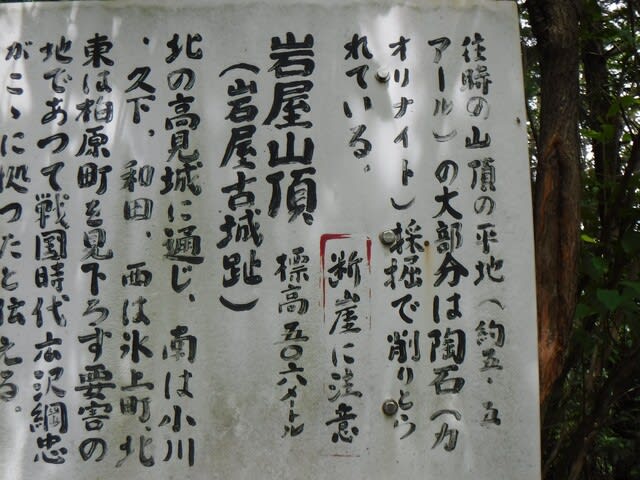 往時の山頂の平地(約五.五
アール)の大部分は陶石(カ
オリナイト)採掘で削りとら
れている。
断崖に注意
岩屋山頂 標高五〇六メートル
(岩屋古城趾)
北の高見城に通じ、南は小川
、久下、和田、西は氷上町、北
東は柏原町を見下ろす要害の
地であつて戦国時代広沢綱忠
がこゝに拠つたと伝える。